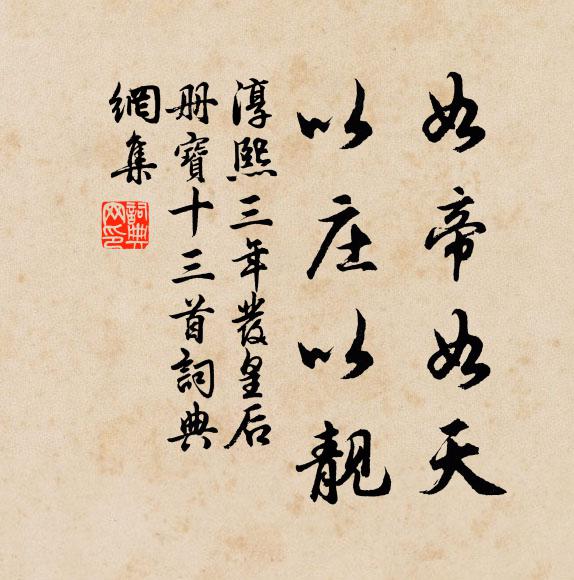 如帝如天
以庄以靚
淳熙三年發皇后
册寶十三首詞典
網集
詞典
网印